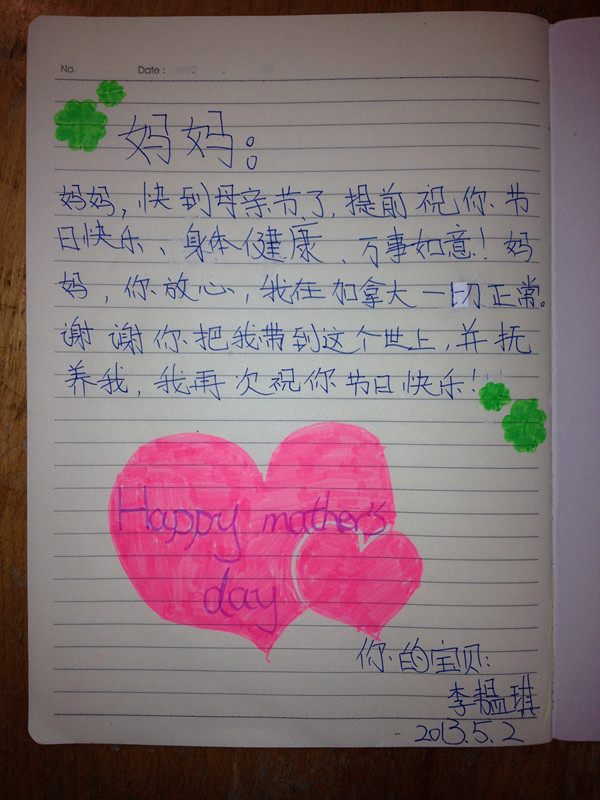 No. Date :
妈妈：
妈妈，快到母亲节了，提前祝你节
日快乐、身体健康、万事如意！妈
妈，你放心，我在加拿大一切正常。
谢谢你把我带到这个世上，并抚
养我，我再次祝你节日快乐！
Happy mather's
day
你的宝贝：
李韫琪
2013.5.2